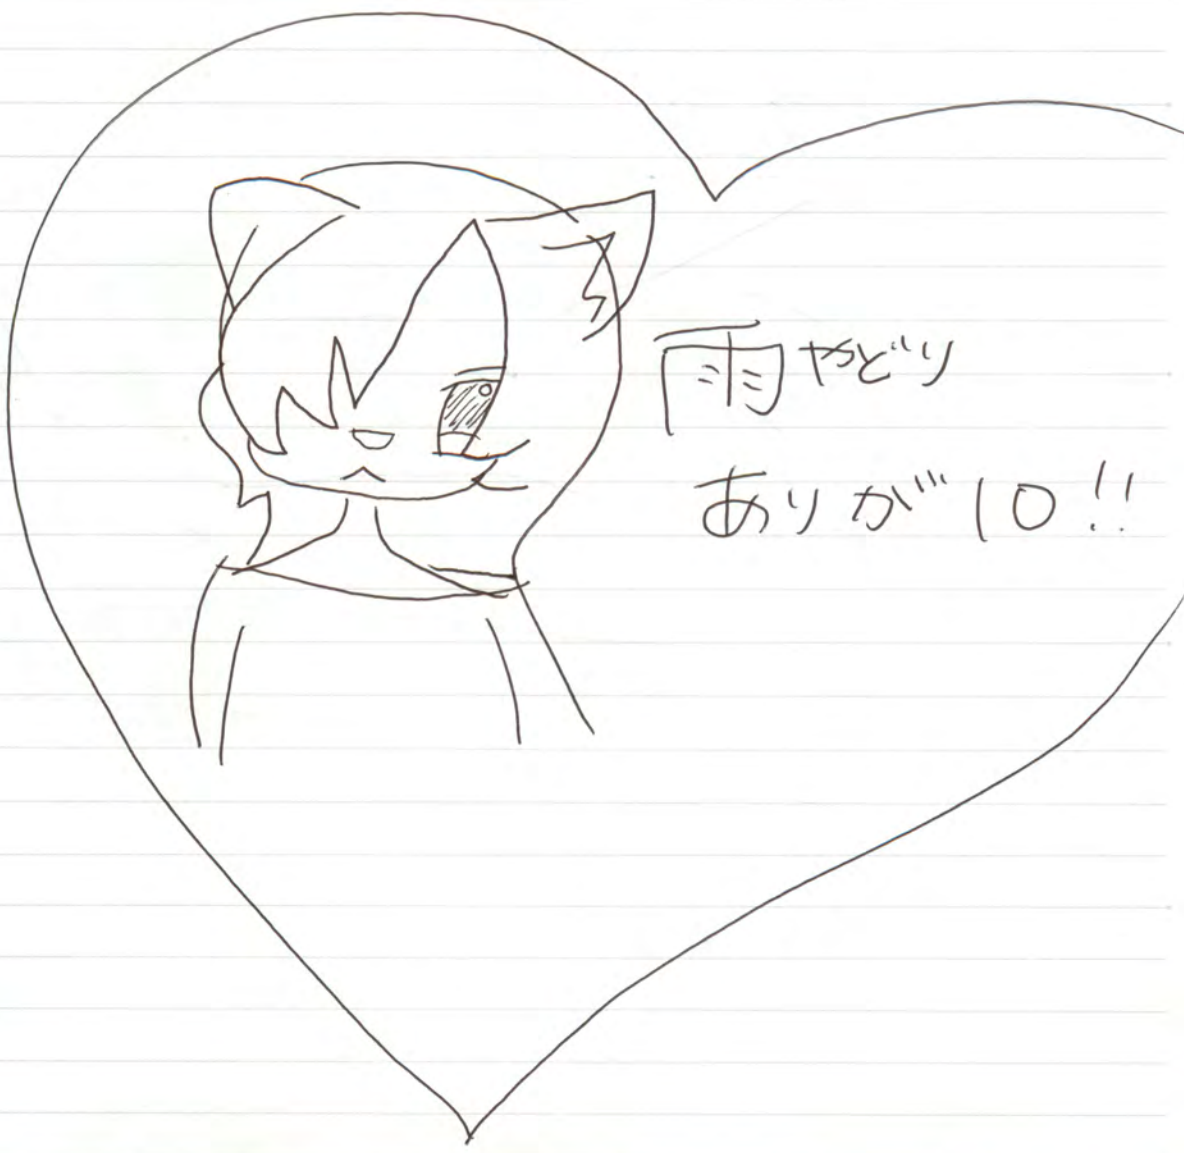 雨やどり
ありが10!!